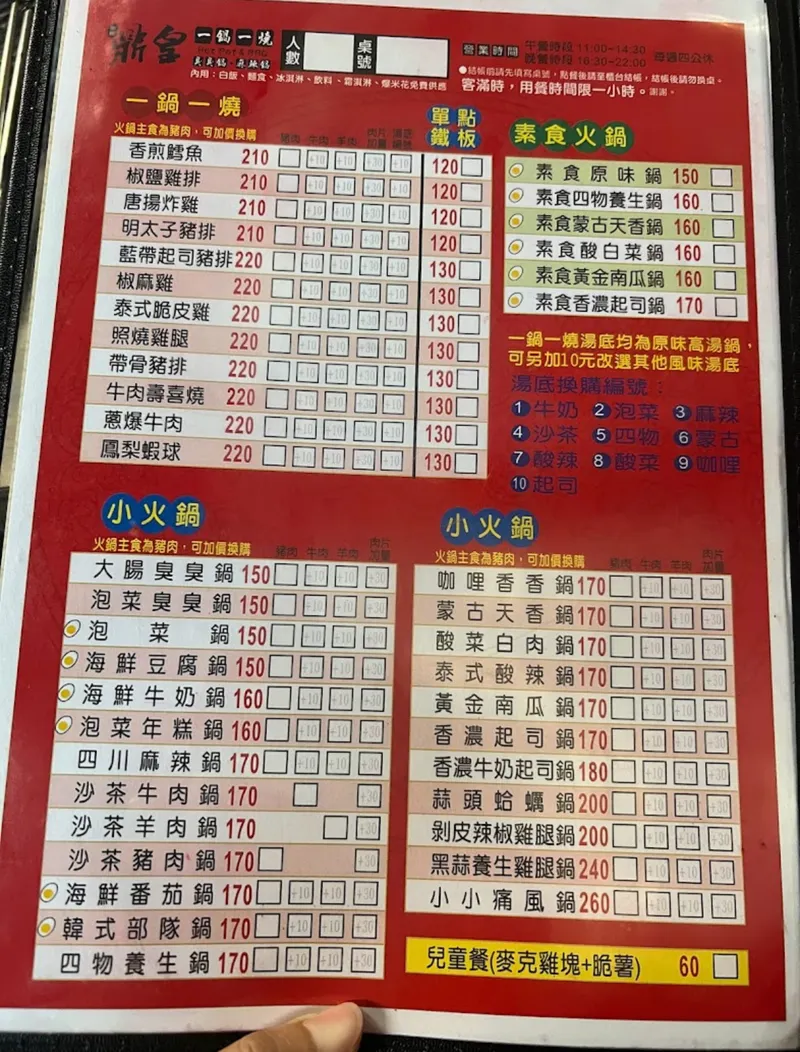 鼎皇 一鍋一燒
Hot Pot & BBQ
臭臭鍋·麻辣鍋
人數 桌號
內用：白飯、麵食、冰淇淋、飲料、霜淇淋、爆米花免費供應
營業時間 午餐時段 11:00~14:30
晚餐時段 16:30~22:00 每週四公休
●結帳前請先填寫桌號，點餐後請至櫃台結帳，結帳後請勿換桌。
客滿時，用餐時間限一小時。謝謝。
一鍋一燒
火鍋主食為豬肉，可加價換購 豬肉 牛肉 羊肉 肉片加量 湯底編號
單點鐵板
香煎鱈魚 210 +10 +10 +30 +10 120
椒鹽雞排 210 +10 +10 +30 +10 120
唐揚炸雞 210 +10 +10 +30 +10 120
明太子豬排 210 +10 +10 +30 +10 120
藍帶起司豬排 220 +10 +10 +30 +10 130
椒麻雞 220 +10 +10 +30 +10 130
泰式脆皮雞 220 +10 +10 +30 +10 130
照燒雞腿 220 +10 +10 +30 +10 130
帶骨豬排 220 +10 +10 +30 +10 130
牛肉壽喜燒 220 +10 +10 +30 +10 130
蔥爆牛肉 220 +10 +10 +30 +10 130
鳳梨蝦球 220 +10 +10 +30 +10 130
素食火鍋
素食原味鍋 150
素食四物養生鍋 160
素食蒙古天香鍋 160
素食酸白菜鍋 160
素食黃金南瓜鍋 160
素食香濃起司鍋 170
一鍋一燒湯底均為原味高湯鍋，
可另加10元改選其他風味湯底
湯底換購編號：
1 牛奶 2 泡菜 3 麻辣
4 沙茶 5 四物 6 蒙古
7 酸辣 8 酸菜 9 咖哩
10 起司
小火鍋
火鍋主食為豬肉，可加價換購 豬肉 牛肉 羊肉 肉片加量
大腸臭臭鍋 150 +10 +10 +30
泡菜臭臭鍋 150 +10 +10 +30
泡菜鍋 150 +10 +10 +30
海鮮豆腐鍋 150 +10 +10 +30
海鮮牛奶鍋 160 +10 +10 +30
泡菜年糕鍋 160 +10 +10 +30
四川麻辣鍋 170 +10 +10 +30
沙茶牛肉鍋 170 +30
沙茶羊肉鍋 170 +30
沙茶豬肉鍋 170 +30
海鮮番茄鍋 170 +10 +10 +30
韓式部隊鍋 170 +10 +10 +30
四物養生鍋 170 +10 +10 +30
小火鍋
火鍋主食為豬肉，可加價換購 豬肉 牛肉 羊肉 肉片加量
咖哩香香鍋 170 +10 +10 +30
蒙古天香鍋 170 +10 +10 +30
酸菜白肉鍋 170 +10 +10 +30
泰式酸辣鍋 170 +10 +10 +30
黃金南瓜鍋 170 +10 +10 +30
香濃起司鍋 170 +10 +10 +30
香濃牛奶起司鍋 180 +10 +10 +30
蒜頭蛤蠣鍋 200 +10 +10 +30
剝皮辣椒雞腿鍋 200 +10 +10 +30
黑蒜養生雞腿鍋 240 +10 +10 +30
小小痛風鍋 260 +10 +10 +30
兒童餐(麥克雞塊+脆薯) 60